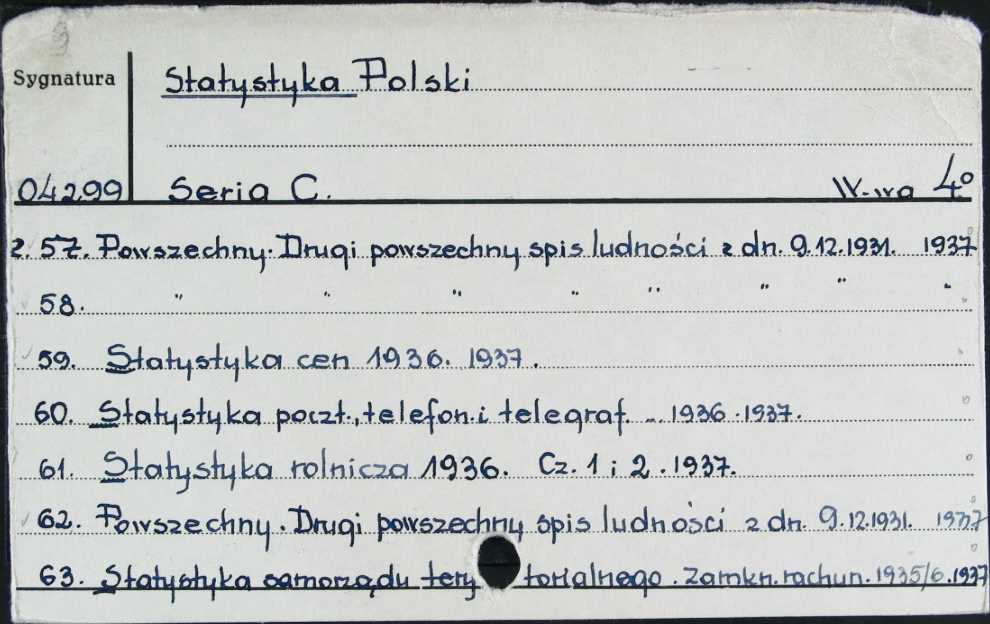 Sygnatura
Statystyka Polski
04299 Seria C. W-wa 4º
z. 57. Powszechny. Drugi powszechny spis ludności z dn. 9.12.1931. 1937
58. " " " " " " " "
59. Statystyka cen 1936. 1937.
60. Statystyka poczt., telefon. i telegraf. .. 1936. 1937.
61. Statystyka rolnicza 1936. Cz. 1 i 2. 1937.
62. Powszechny. Drugi powszechny spis ludności z dn. 9.12.1931. 1937
63. Statystyka samorządu terytorialnego. Zamkn. rachun. 1935/6. 1937